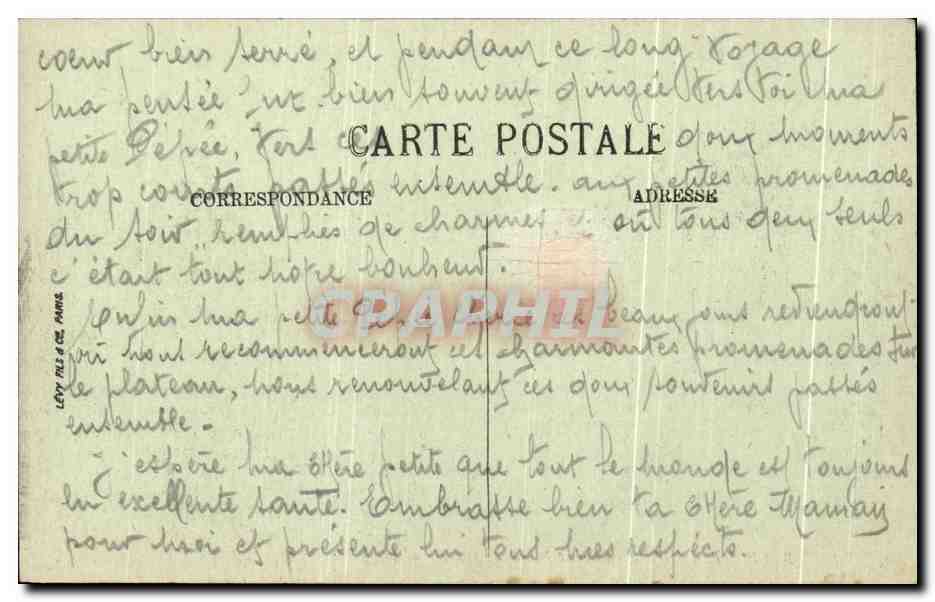 cœur bien serré, et pendant ce long voyage
ma pensée s'est bien souvent dirigée vers toi ma
petite Pépée, vers ces doux moments
CARTE POSTALE
trop courts passés ensemble. aux petites promenades
CORRESPONDANCE
ADRESSE
du soir, remplies de charmes, et où tous deux seuls
c'était tout notre bonheur.
CPARHIL
LÉVY FILS & CIE, PARIS.
Enfin ma petite Pépée ces beaux jours reviendront
où nous recommencerons ces charmantes promenades sur
le plateau, nous renouvelant ces doux souvenirs passés
ensemble.
J'espère ma chère petite que tout le monde est toujours
en excellente santé. Embrasse bien ta chère Maman
pour moi et présente lui tous mes respects.